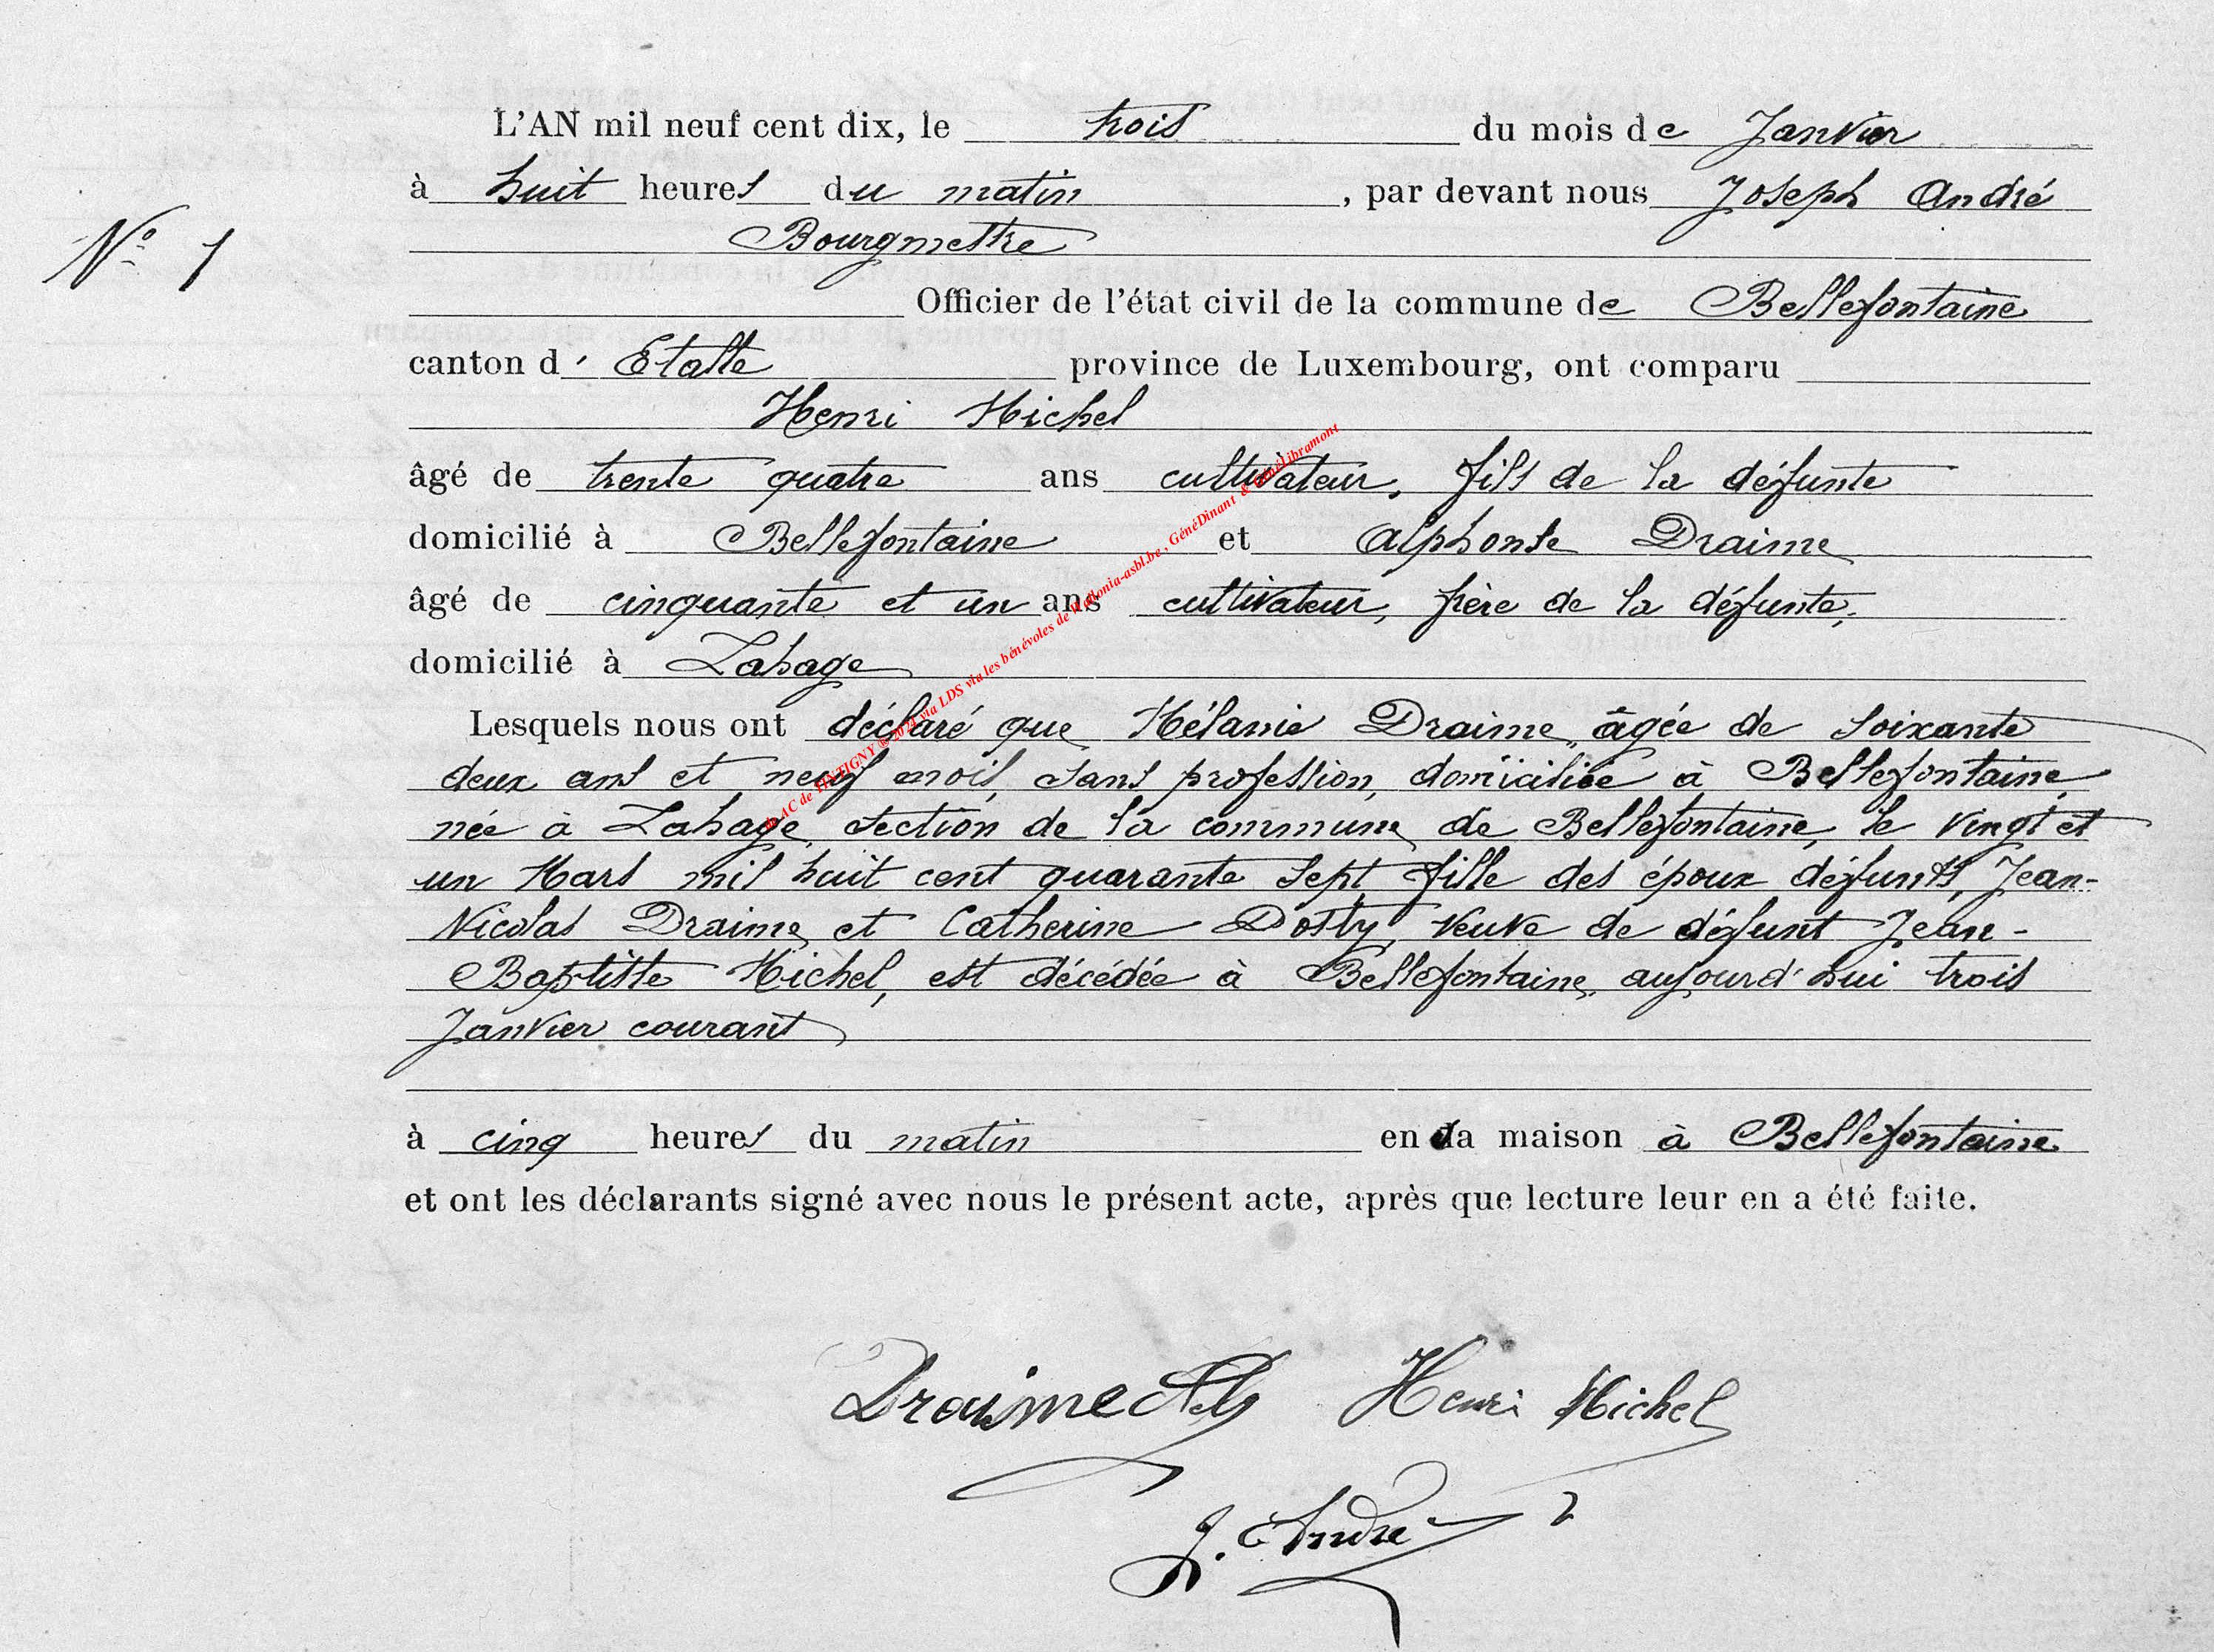 L'AN mil neuf cent dix, le trois du mois de Janvier
à huit heures du matin, par devant nous Joseph André
N° 1
Bourgmestre
Officier de l'état civil de la commune de Bellefontaine
canton d' Etalle province de Luxembourg, ont comparu
Henri Michel
âgé de trente quatre ans cultivateur, fils de la défunte
domicilié à Bellefontaine et Alphonse Draime
âgé de cinquante et un ans cultivateur, frère de la défunte,
domicilié à Lahage
Lesquels nous ont déclaré que Mélanie Draime, âgée de soixante
deux ans et neuf mois, sans profession, domiciliée à Bellefontaine,
née à Lahage, section de la commune de Bellefontaine, le vingt et
un Mars mil huit cent quarante sept, fille des époux défunts, Jean-
Nicolas Draime et Catherine Dosty, veuve de défunt Jean-
Baptiste Michel, est décédée à Bellefontaine, aujourd'hui trois
Janvier courant
à cinq heures du matin en sa maison à Bellefontaine
et ont les déclarants signé avec nous le présent acte, après que lecture leur en a été faite.
Draime Alp Henri Michel
J. André
AC de TINTIGNY © 2024 via LDS via les bénévoles de Wallonia-asbl.be, GénéDinant & GénéLibramont